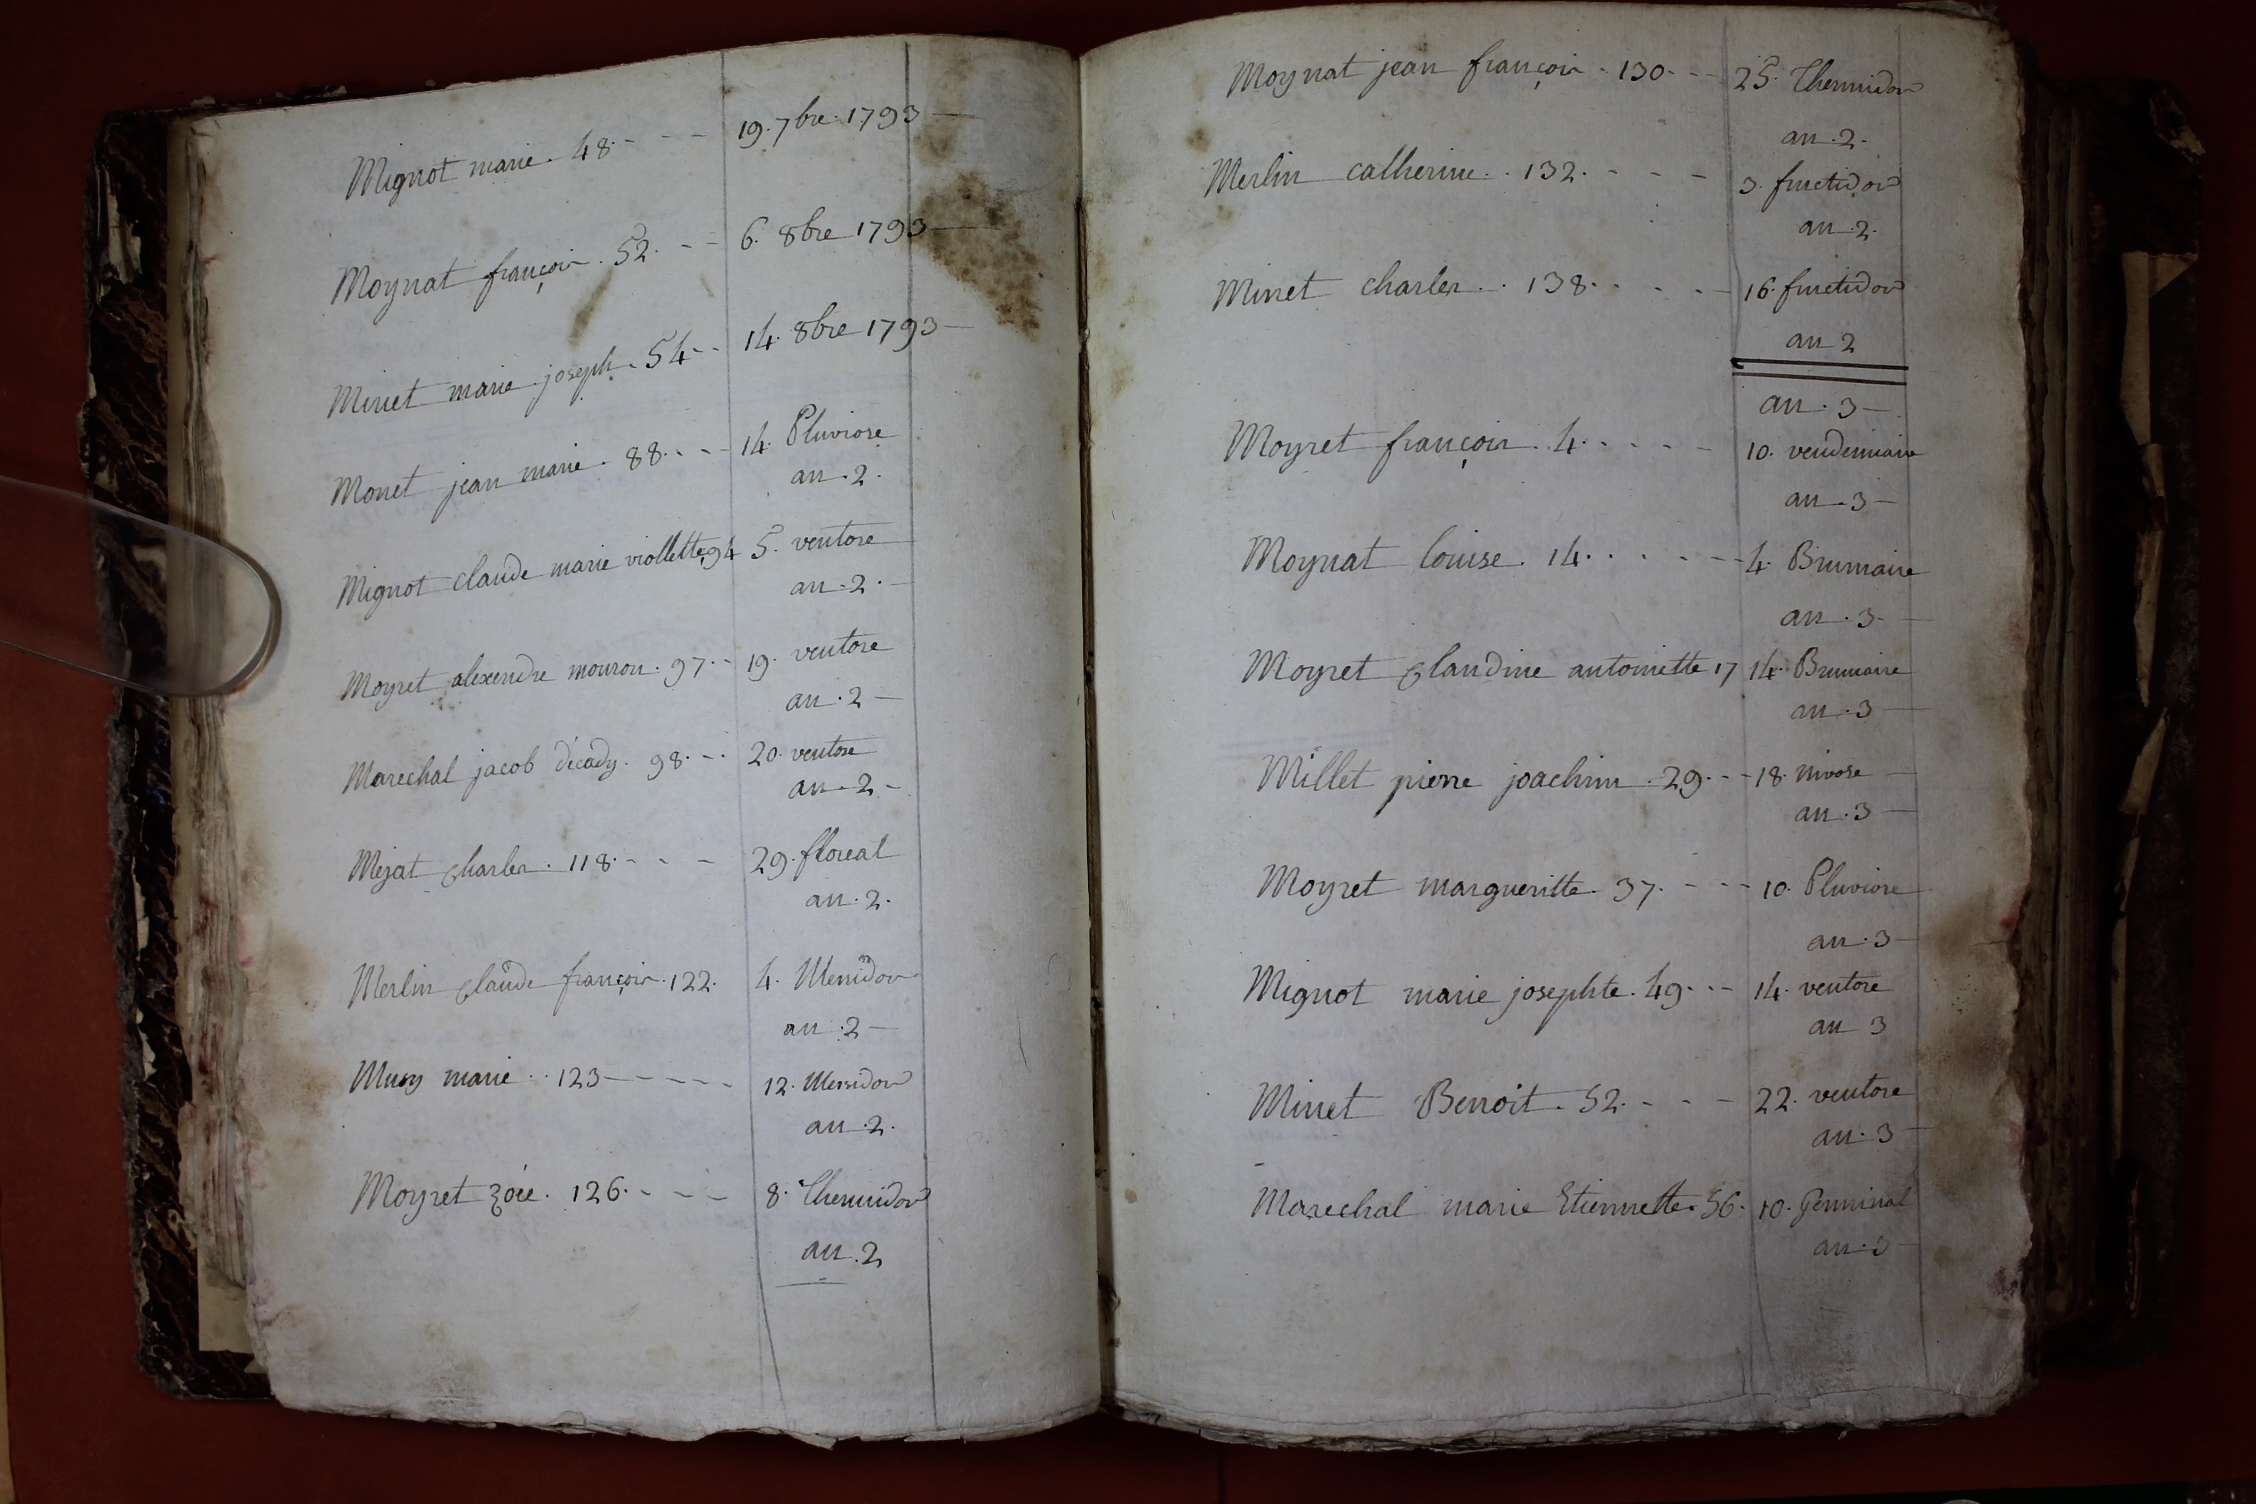 Mignot marie. 48. - - - 19. 7bre. 1793 -
Moynat françois. 52. - - 6. 8bre 1793 -
Minet marie joseph. 54 - - 14. 8bre 1793 -
Monet jean marie. 88. - - - 14. Pluviose
an. 2.
Mignot claude marie viollette, 94 5. ventose
an. 2. -
Moyret alexendre mouron. 97. - 19. ventose
an. 2 -
Marechal jacob décady. 98. - - 20. ventose
an. 2 -
Mejat charles. 118. - - - 29. floreal
an. 2.
Merlin claude françois. 122. 4. Messidor
an. 2 -
Musy marie. . 123 - - - - - 12. Messidor
an. 2.
Moyret zoée. 126. - - - 8. Thermidor
an. 2
Moynat jean françois. 130. - - 25. Thermidor
an. 2.
Merlin catherine. . 132. - - - 3. fructidor
an. 2.
Minet charles. . 138. - - - - 16. fructidor
an 2
an. 3 -
Moyret françois. 4. - - - - 10. vendemiaire
an. 3 -
Moynat louise. 14. - - - - - 4. Brumaire
an. 3. -
Moyret claudine antoinette 17 14. Brumaire
an. 3 -
Millet pierre joachim. 29. - - 18. nivose -
an. 3 -
Moyret margueritte. 37. - - - 10. Pluviose
an. 3 -
Mignot marie josephte. 49. - - 14. ventose
an 3
Minet Benoit. 52. - - - 22. ventose
an. 3 -
Marechal marie Etiennette. 56. 10. Germinal
an. 3 -